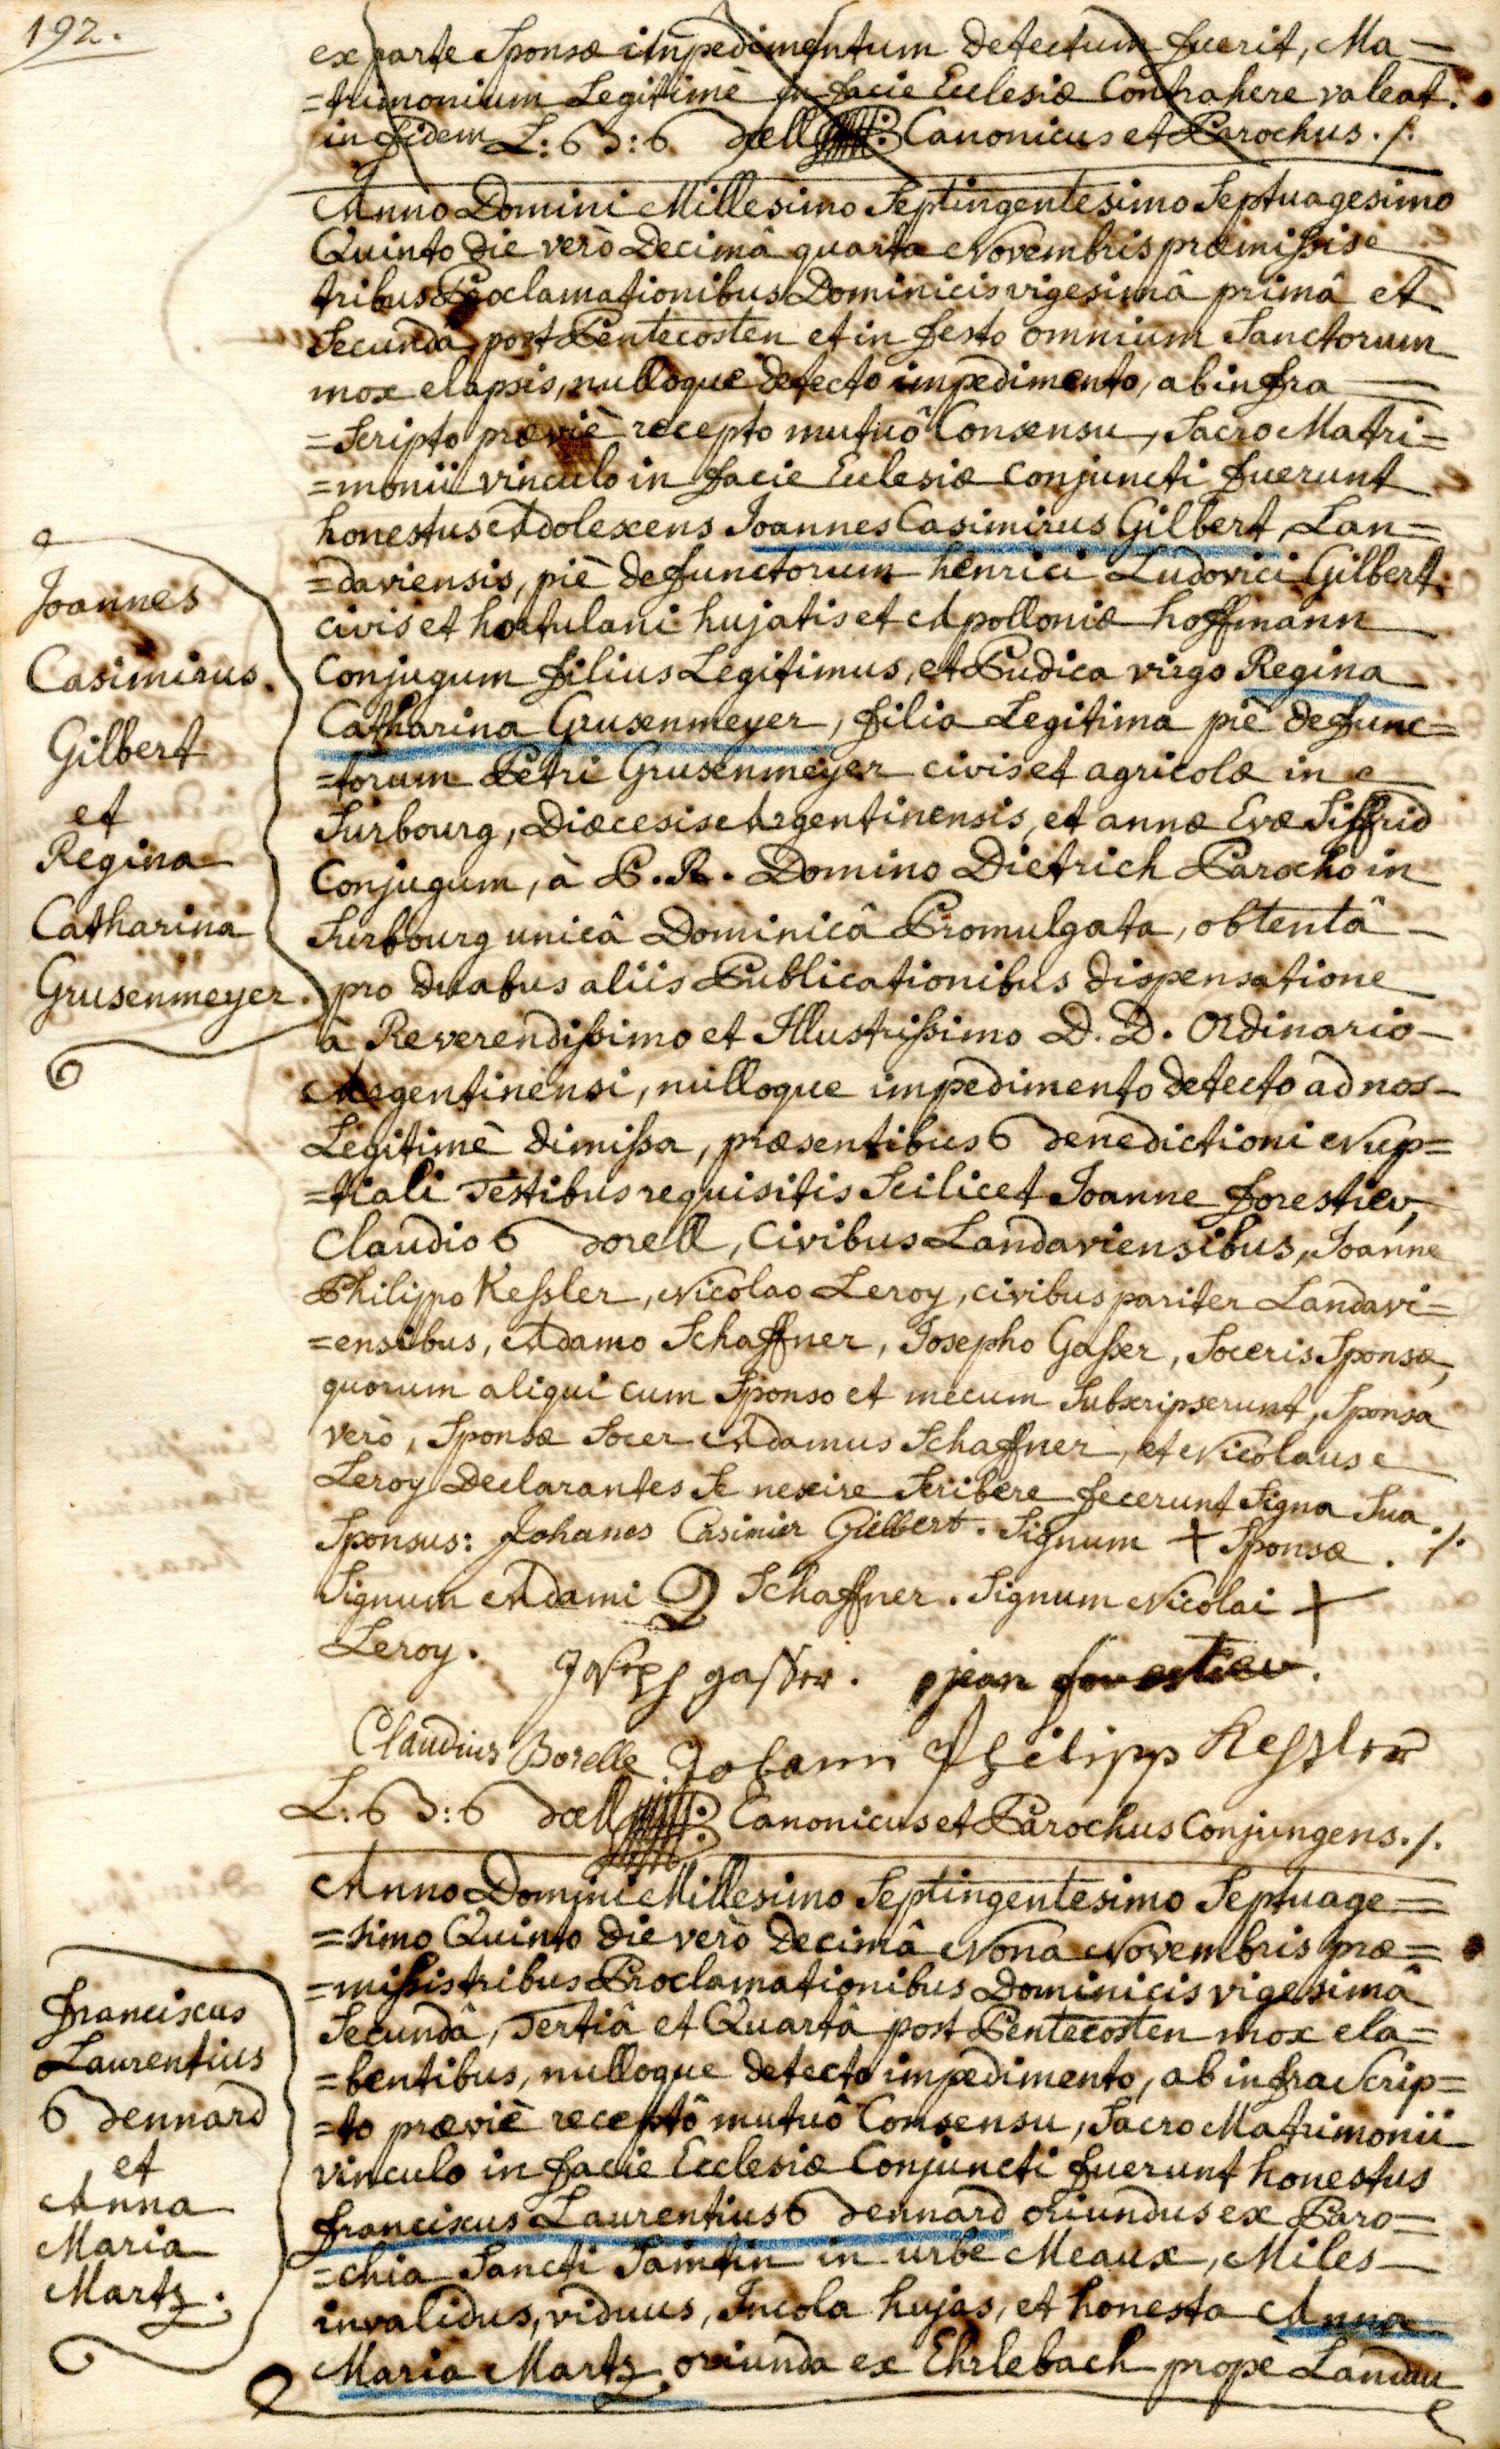 192.
ex parte Sponsæ impedimentum detectum fuerit, Ma-
=trimonium Legitimè in facie Ecclesiæ Contrahere valeat.
in fidem L: B: Böell Canonicus et Parochus ./.
Anno Domini Millesimo Septingentesimo Septuagesimo
Quinto die verò Decimâ quarta Novembris præmissis
tribus Proclamationibus Dominicis vigesimâ primâ et
Secundâ post Pentecosten et in festo omnium Sanctorum
mox elapsis, nulloque detecto impedimento, ab infra
=Scripto præviè recepto mutuô Consensu, Sacro Matri=
=monii vinculo in facie Ecclesiæ conjuncti fuerunt
honestus Adolescens Joannes Casimirus Gilbert, Lan=
=daviensis, piè defunctorum henrici Ludovici Gilbert
civis et hortulani hujatis et Apolloniæ hoffmann
Conjugum filius Legitimus, et Pudica virgo Regina
Catharina Grusenmeyer, filia Legitima piè defunc=
=torum Petri Grusenmeyer civis et agricolæ in
Surbourg, Diæcesis Argentinensis, et annæ Evæ Siffrid
Conjugum, à P. R. Domino Dietrich Parocho in
Surbourg unicâ Dominicâ Promulgata, obtentâ
pro duabus aliis Publicationibus dispensatione
à Reverendissimo et Illustrissimo D. D. Ordinario
Argentinensi, nulloque impedimento detecto ad nos
Legitimè dimissa, præsentibus Benedictioni Nup=
=tiali Testibus requisitis Scilicet Joanne forestier,
Claudio Borell, Civibus Landaviensibus, Joanne
Philippo Kessler, Nicolao Leroy, civibus pariter Landavi=
=ensibus, Adamo Schaffner, Josepho Gasser, Soceris Sponsæ,
quorum aliqui cum Sponso et mecum Subscripserunt, Sponsa
verò, Sponsæ Socer Adamus Schaffner, et Nicolaus
Leroy Declarantes Se nescire Scribere fecerunt Signa Sua ./.
Sponsus: Johanes Casimier Gielbert. Signum + Sponsæ.
Signum Adami Schaffner. Signum Nicolai +
Leroy. Joseph gasser. jean forestier.
Claudius Borelle. Johann Philipp Kessler
L: B: Böell Canonicus et Parochus Conjungens ./.
Joannes
Casimirus
Gilbert
et
Regina
Catharina
Grusenmeyer.
Anno Domini Millesimo Septingentesimo Septuage=
=simo Quinto die verò Decimâ Nona Novembris præ=
=missis tribus Proclamationibus Dominicis vigesimâ
Secundâ, Tertiâ et Quartâ post Pentecosten mox ela=
=bentibus, nulloque detecto impedimento, ab infra Scrip=
=to præviè receptô mutuô Consensu, Sacro Matrimonii
vinculo in facie Ecclesiæ Conjuncti fuerunt honestus
franciscus Laurentius Bennard oriundus ex Paro=
=chia Sancti Saintin in urbe Meaux, Miles
invalidus, viduus, Incola hujas, et honesta Anna
Maria Martz oriunda ex Ehrlebach propè Landau
franciscus
Laurentius
Bennard
et
Anna
Maria
Martz.